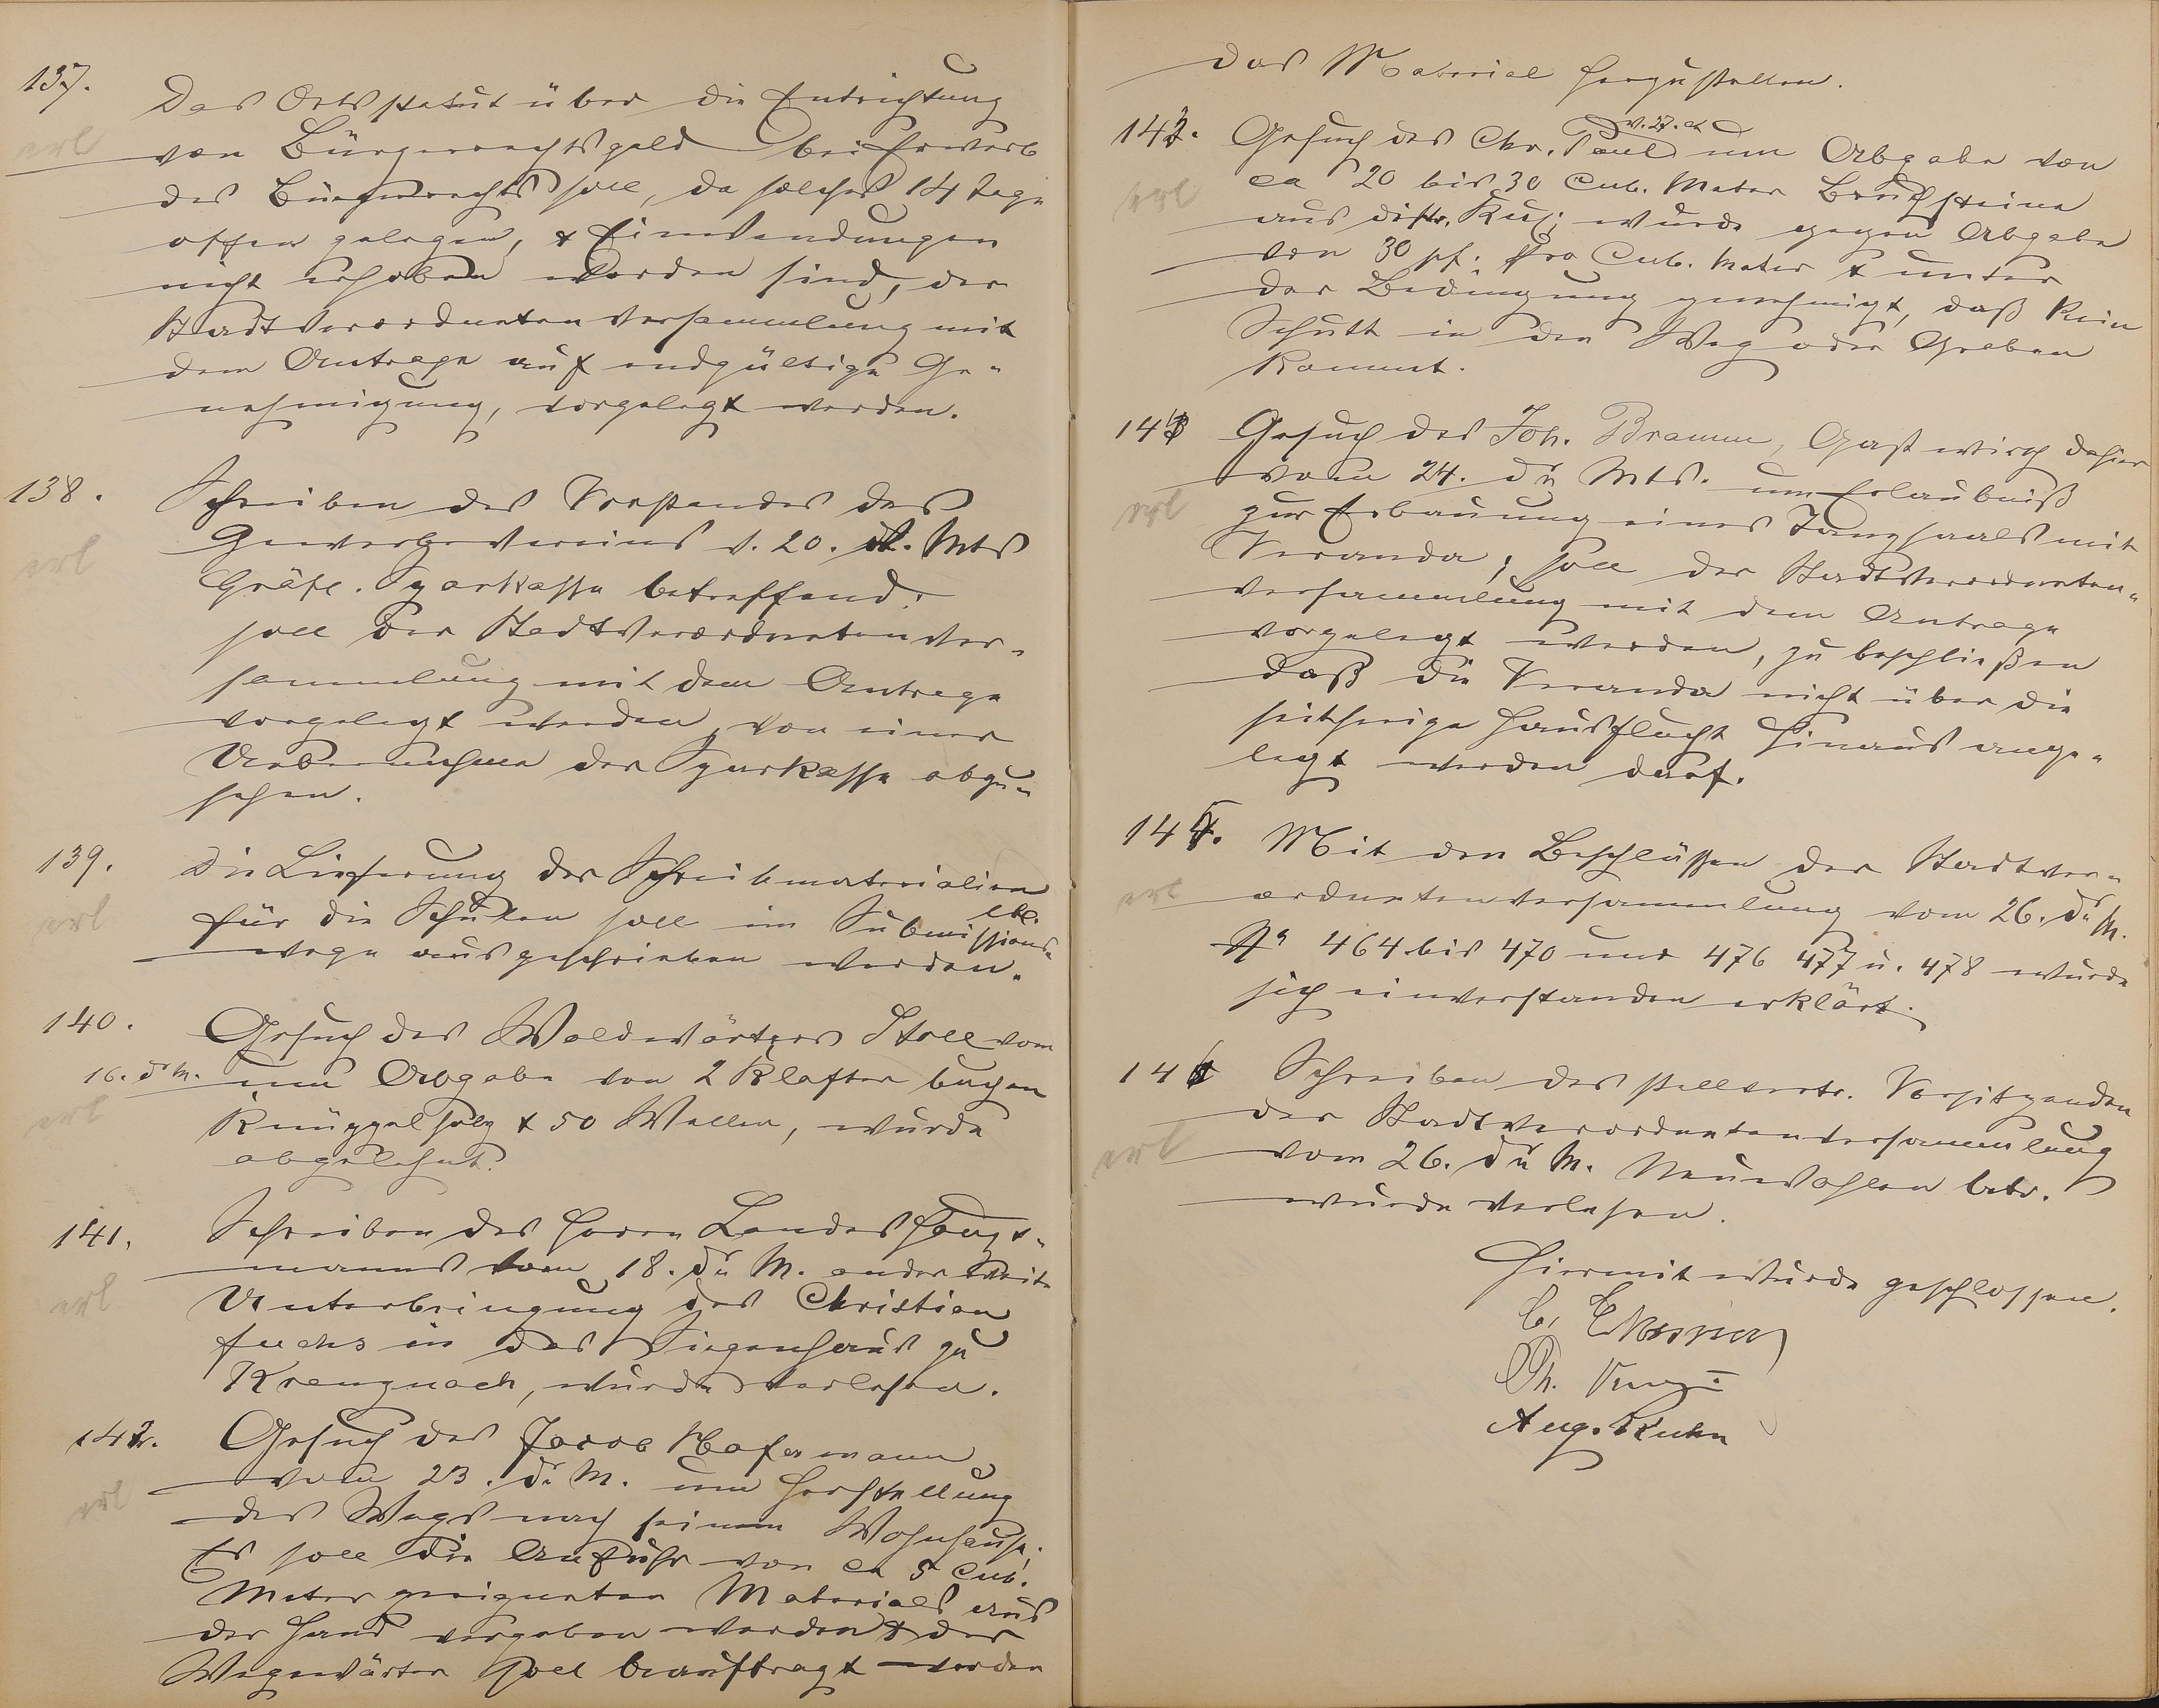 137.
erl
Das Ortsstatut über die Entrichtung
von Bürgerrechtsgeld bei Erwerb
des Bürgerrechts soll, da solches 14 Tage
offen gelegen, & Einwendungen
nicht erhoben worden sind, der
Stadtverordnetenversammlung mit
dem Antrage auf endgültige Ge-
nehmigung, vorgelegt werden.
138.
erl
Schreiben des Vorstandes des
Gewerbevereins v. 20. d. Mts
Gräfl. Sparkasse betreffend:
soll der Stadtverordnetenver-
sammlung mit dem Antrage
vorgelegt werden, von einer
Uebernahme der Sparkasse abzu-
sehen.
139.
erl
Die Lieferung der Schreibmaterialien
etc.
für die Schulen soll im Submissions-
wege ausgeschrieben werden.
140.
erl
Gesuch des Waldwärters Stoll vom
16. d. M. um Abgabe von 2 Klafter buchen
Knüppelholz & 50 Wellen, wurde
abgelehnt.
141.
erl
Schreiben des Herrn Landeshaupt-
manns vom 18. ds M. anderweite
Unterbringung des Christian
Fuchs in das Siegenhaus zu
Kreuznach, wurde verlesen.
142.
erl
Gesuch des Jacob Hafermann
vom 23. ds M. um Herstellung
des Wegs nach seinem Wohnhause.
Es soll die Anfuhr von ca 5 Cub.
Meter geeigneten Materials aus
der Hand vergeben werden & der
Wegewärter soll beauftragt werden
das Material herzustellen.
143.
erl
v. 27. ct
Gesuch des Chr. Paul um Abgabe von
ca 20 bis 30 Cub. Meter Bruchsteine
aus distr. wurde gegen Abgabe
von 30 pf. pro Cub. Meter & unter
der Bedingung genehmigt, daß kein
Schutt in den Weg oder Graben
kommt.
144
erl
Gesuch des Joh. Bramm, Gastwirth dahier
vom 24. ds Mts. um Erlaubniß
zur Erbauung eines Tanzsaals mit
Veranda; soll der Stadtverordneten-
versammlung mit dem Antrage
vorgelegt werden, zu beschließen
daß die Veranda nicht über die
seitherige Hausflucht hinaus ange-
legt werden darf.
145.
erl
Mit den Beschlüssen der Stadtver-
ordnetenversammlung vom 26. ds M.
No 464 bis 470 und 476 477 u. 478 wurde
sich einverstanden erklärt.
146
erl
Schreiben des stellvertr. Vorsitzenden
der Stadtverordnetenversammlung
vom 26. ds M. Neuwahlen betr.
wurde verlesen.
Hiermit wurde geschlossen.
Aug. Kuhn